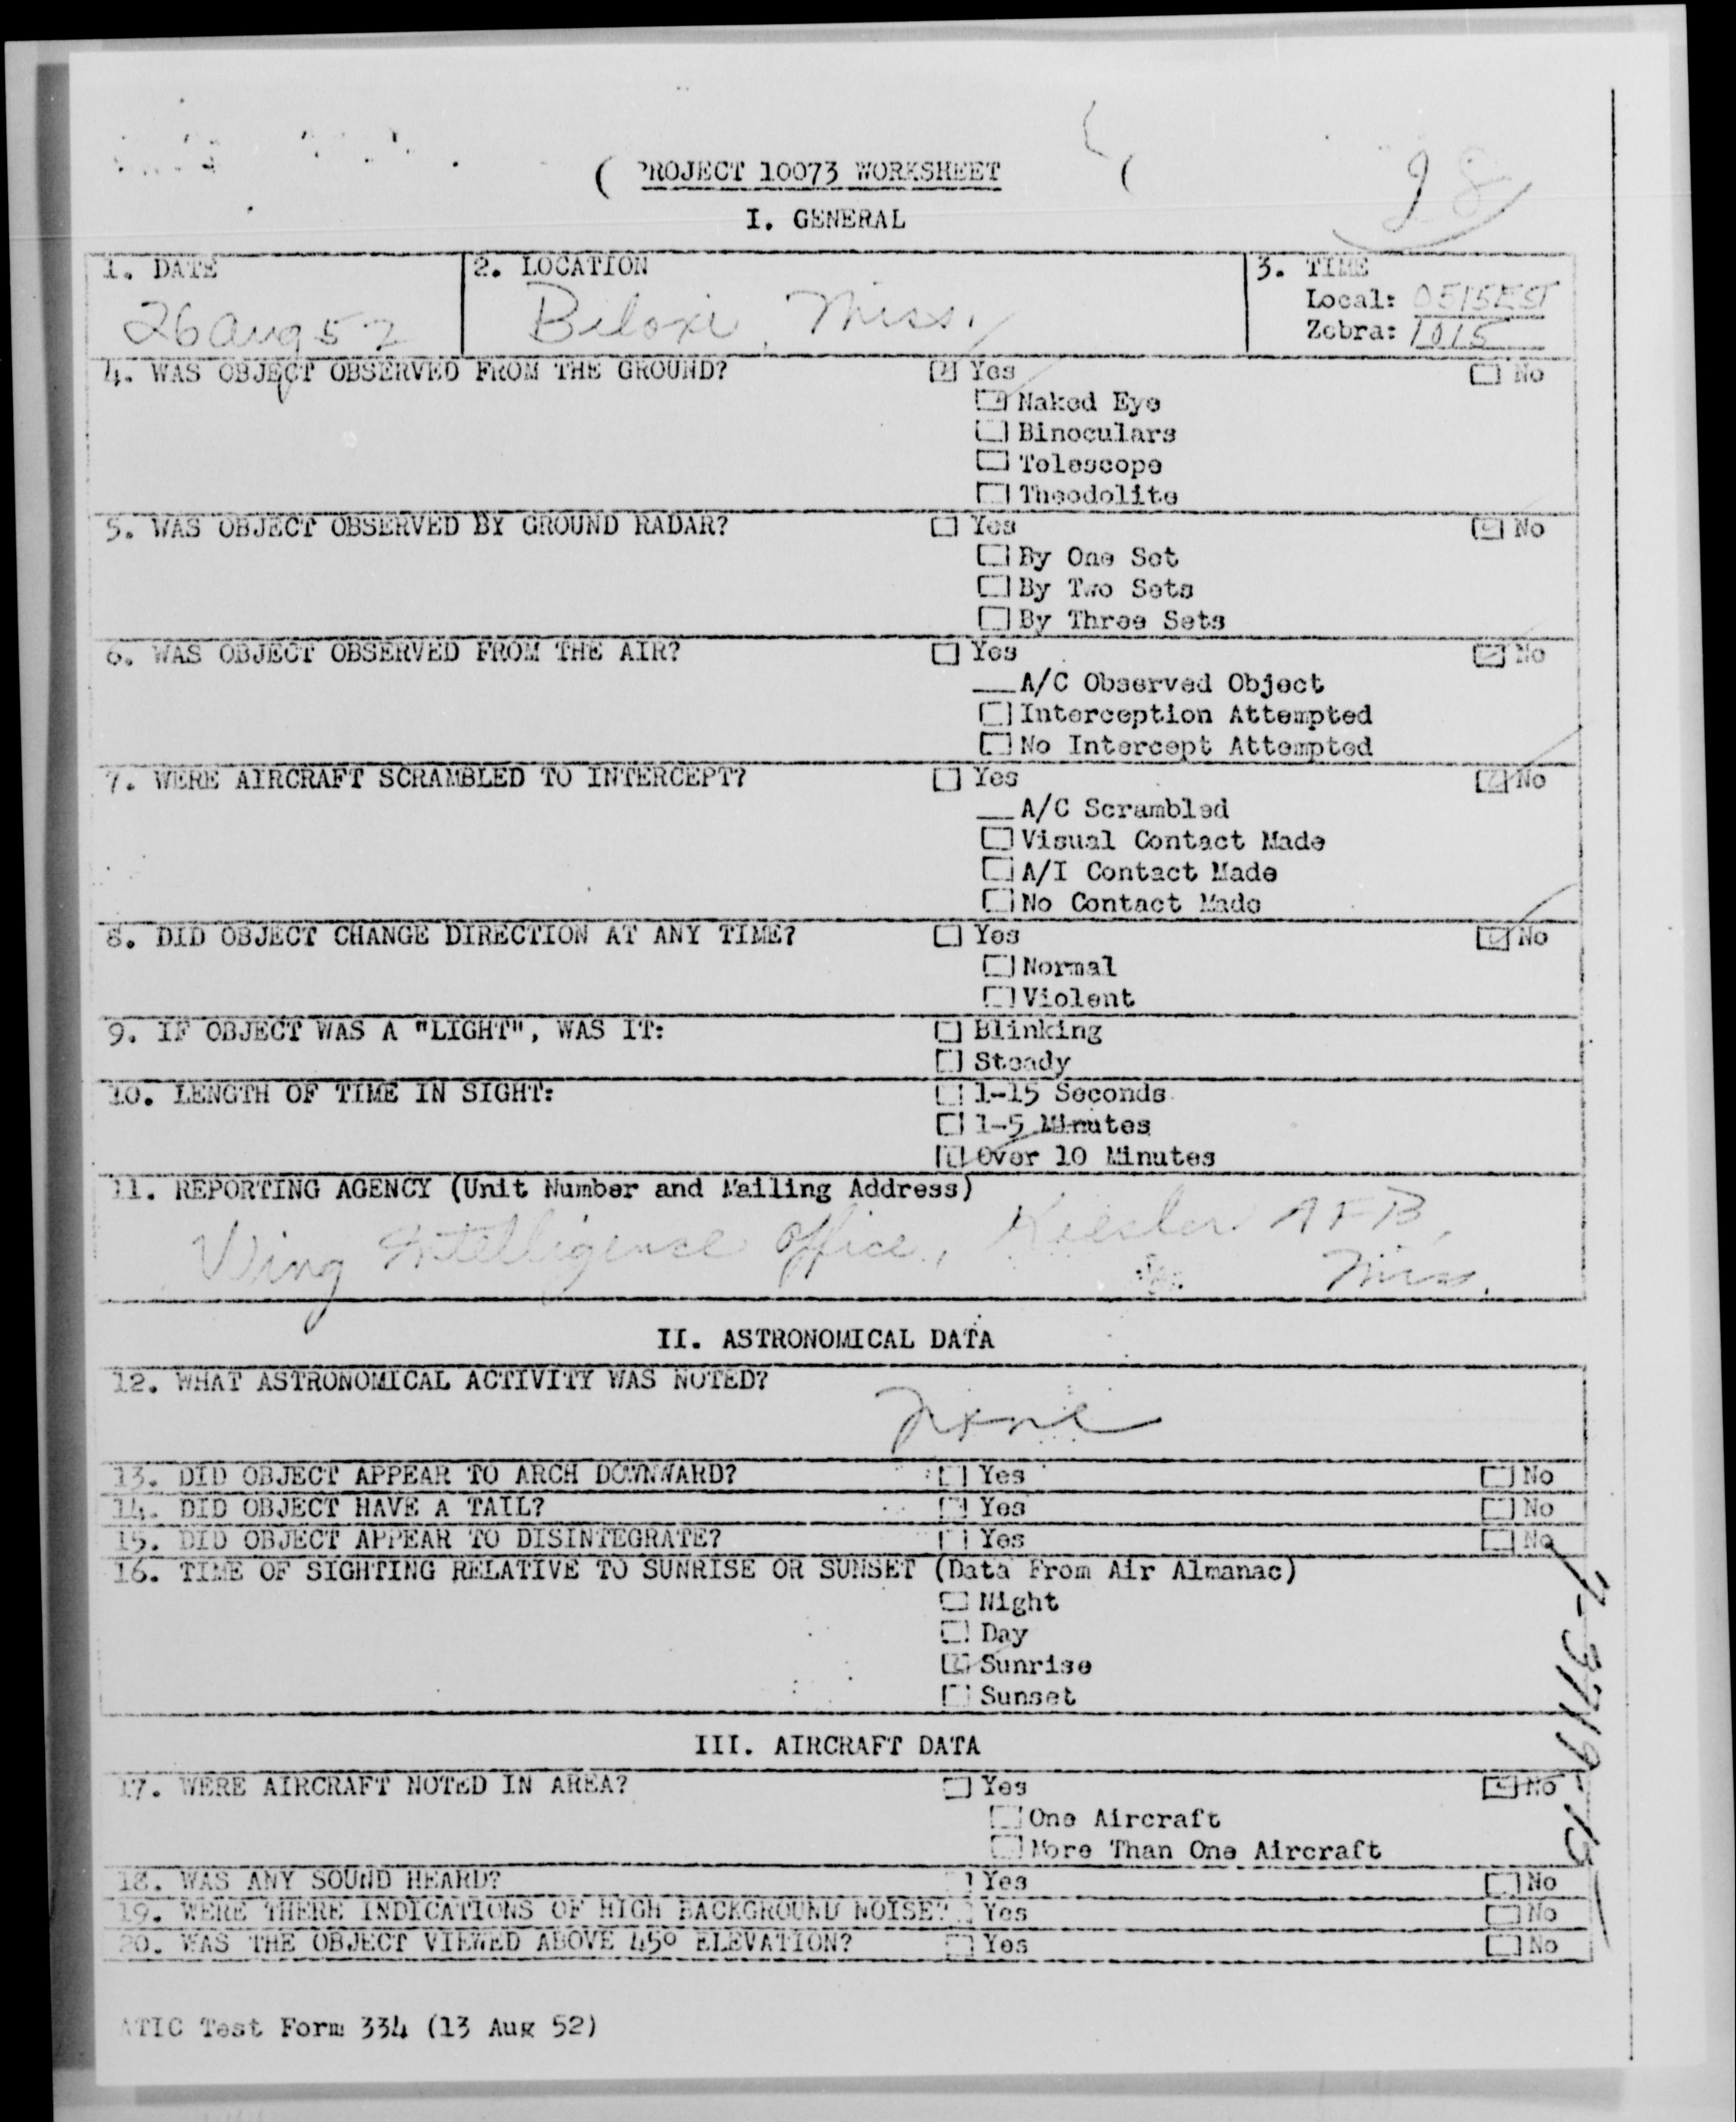 PROJECT 10073 WORKSHEET
I. GENERAL
1. DATE
26 Aug 52
2. LOCATION
Biloxi, Miss.
3. TIME
Local: 0515EST
Zebra: 1015
4. WAS OBJECT OBSERVED FROM THE GROUND? Yes No
Naked Eye
Binoculars
Telescope
Theodolite
5. WAS OBJECT OBSERVED BY GROUND RADAR? Yes No
By One Set
By Two Sets
By Three Sets
6. WAS OBJECT OBSERVED FROM THE AIR? Yes No
A/C Observed Object
Interception Attempted
No Intercept Attempted
7. WERE AIRCRAFT SCRAMBLED TO INTERCEPT? Yes No
A/C Scrambled
Visual Contact Made
A/I Contact Made
No Contact Made
8. DID OBJECT CHANGE DIRECTION AT ANY TIME? Yes No
Normal
Violent
9. IF OBJECT WAS A "LIGHT", WAS IT: Blinking
Steady
10. LENGTH OF TIME IN SIGHT: 1-15 Seconds
1-5 Minutes
Over 10 Minutes
11. REPORTING AGENCY (Unit Number and Mailing Address)
Wing Intelligence Office, Keesler AFB,
Miss.
II. ASTRONOMICAL DATA
12. WHAT ASTRONOMICAL ACTIVITY WAS NOTED?
None
13. DID OBJECT APPEAR TO ARCH DOWNWARD? Yes No
14. DID OBJECT HAVE A TAIL? Yes No
15. DID OBJECT APPEAR TO DISINTEGRATE? Yes No
16. TIME OF SIGHTING RELATIVE TO SUNRISE OR SUNSET (Data From Air Almanac)
Night
Day
Sunrise
Sunset
III. AIRCRAFT DATA
17. WERE AIRCRAFT NOTED IN AREA? Yes No
One Aircraft
More Than One Aircraft
18. WAS ANY SOUND HEARD? Yes No
19. WERE THERE INDICATIONS OF HIGH BACKGROUND NOISE? Yes No
20. WAS THE OBJECT VIEWED ABOVE 45° ELEVATION? Yes No
ATIC Test Form 334 (13 Aug 52)